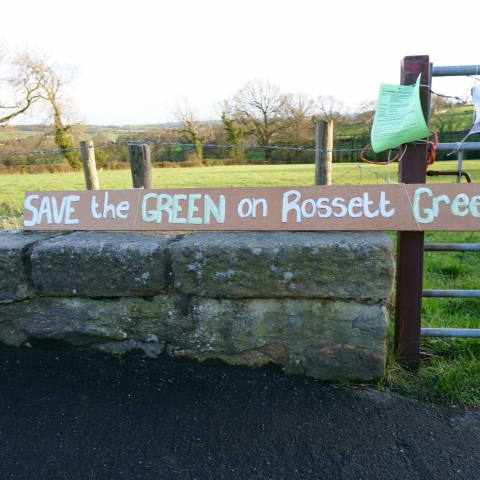 SAVE the GREEN on Rossett Gree